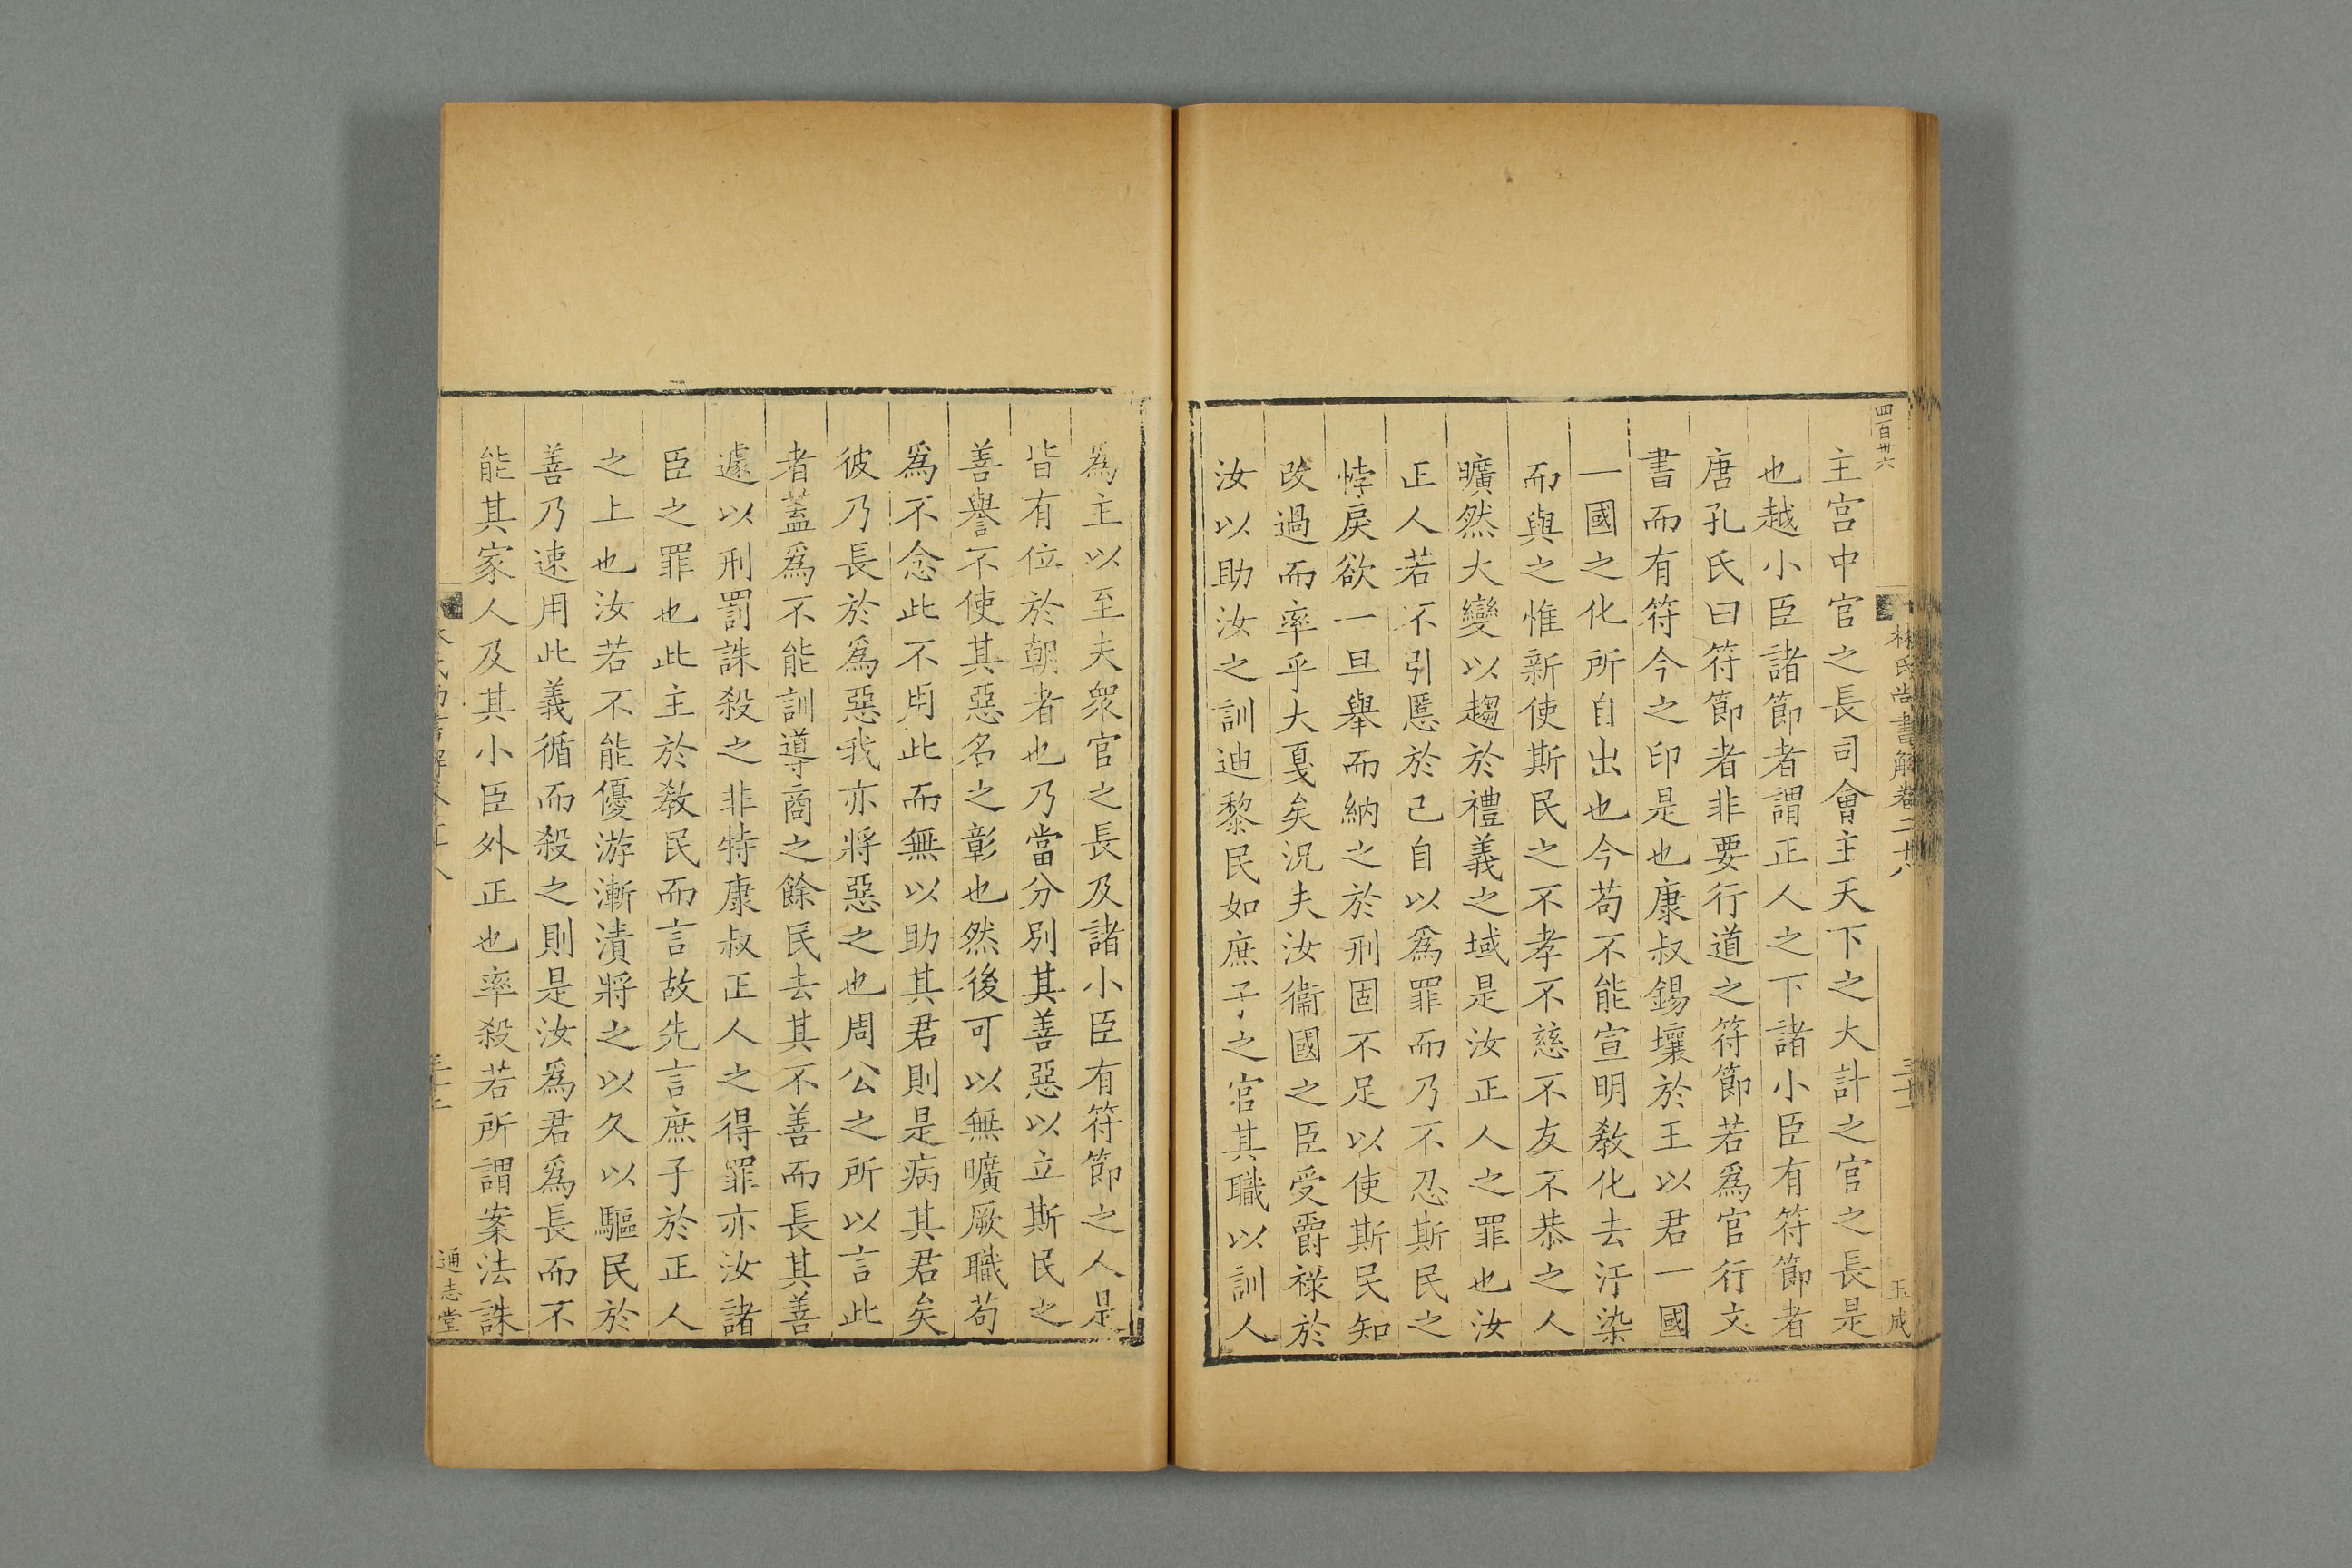 四百卅六
林氏尚書解卷二十八
三十一
玉成
主宫中官之長司會主天下之大計之官之長是
也越小臣諸節者謂正人之下諸小臣有符節者
唐孔氏曰符節者非要行道之符節若爲官行文
書而有符今之印是也康叔錫壤於王以君一國
一國之化所自出也今苟不能宣明敎化去汙染
而與之惟新使斯民之不孝不慈不友不恭之人
曠然大變以趨於禮義之域是汝正人之罪也汝
正人若不引慝於己自以爲罪而乃不忍斯民之
悖戾欲一旦舉而納之於刑固不足以使斯民知
改過而率乎大戛矣況夫汝衞國之臣受爵祿於
汝以助汝之訓迪黎民如庶子之官其職以訓人
爲主以至夫衆官之長及諸小臣有符節之人是
皆有位於朝者也乃當分別其善惡以立斯民之
善譽不使其惡名之彰也然後可以無曠厥職苟
爲不念此不用此而無以助其君則是病其君矣
彼乃長於爲惡我亦將惡之也周公之所以言此
者蓋爲不能訓導商之餘民去其不善而長其善
遽以刑罰誅殺之非特康叔正人之得罪亦汝諸
臣之罪也此主於敎民而言故先言庶子於正人
之上也汝若不能優游漸漬將之以久以驅民於
善乃速用此義循而殺之則是汝爲君爲長而不
能其家人及其小臣外正也率殺若所謂案法誅
通志堂